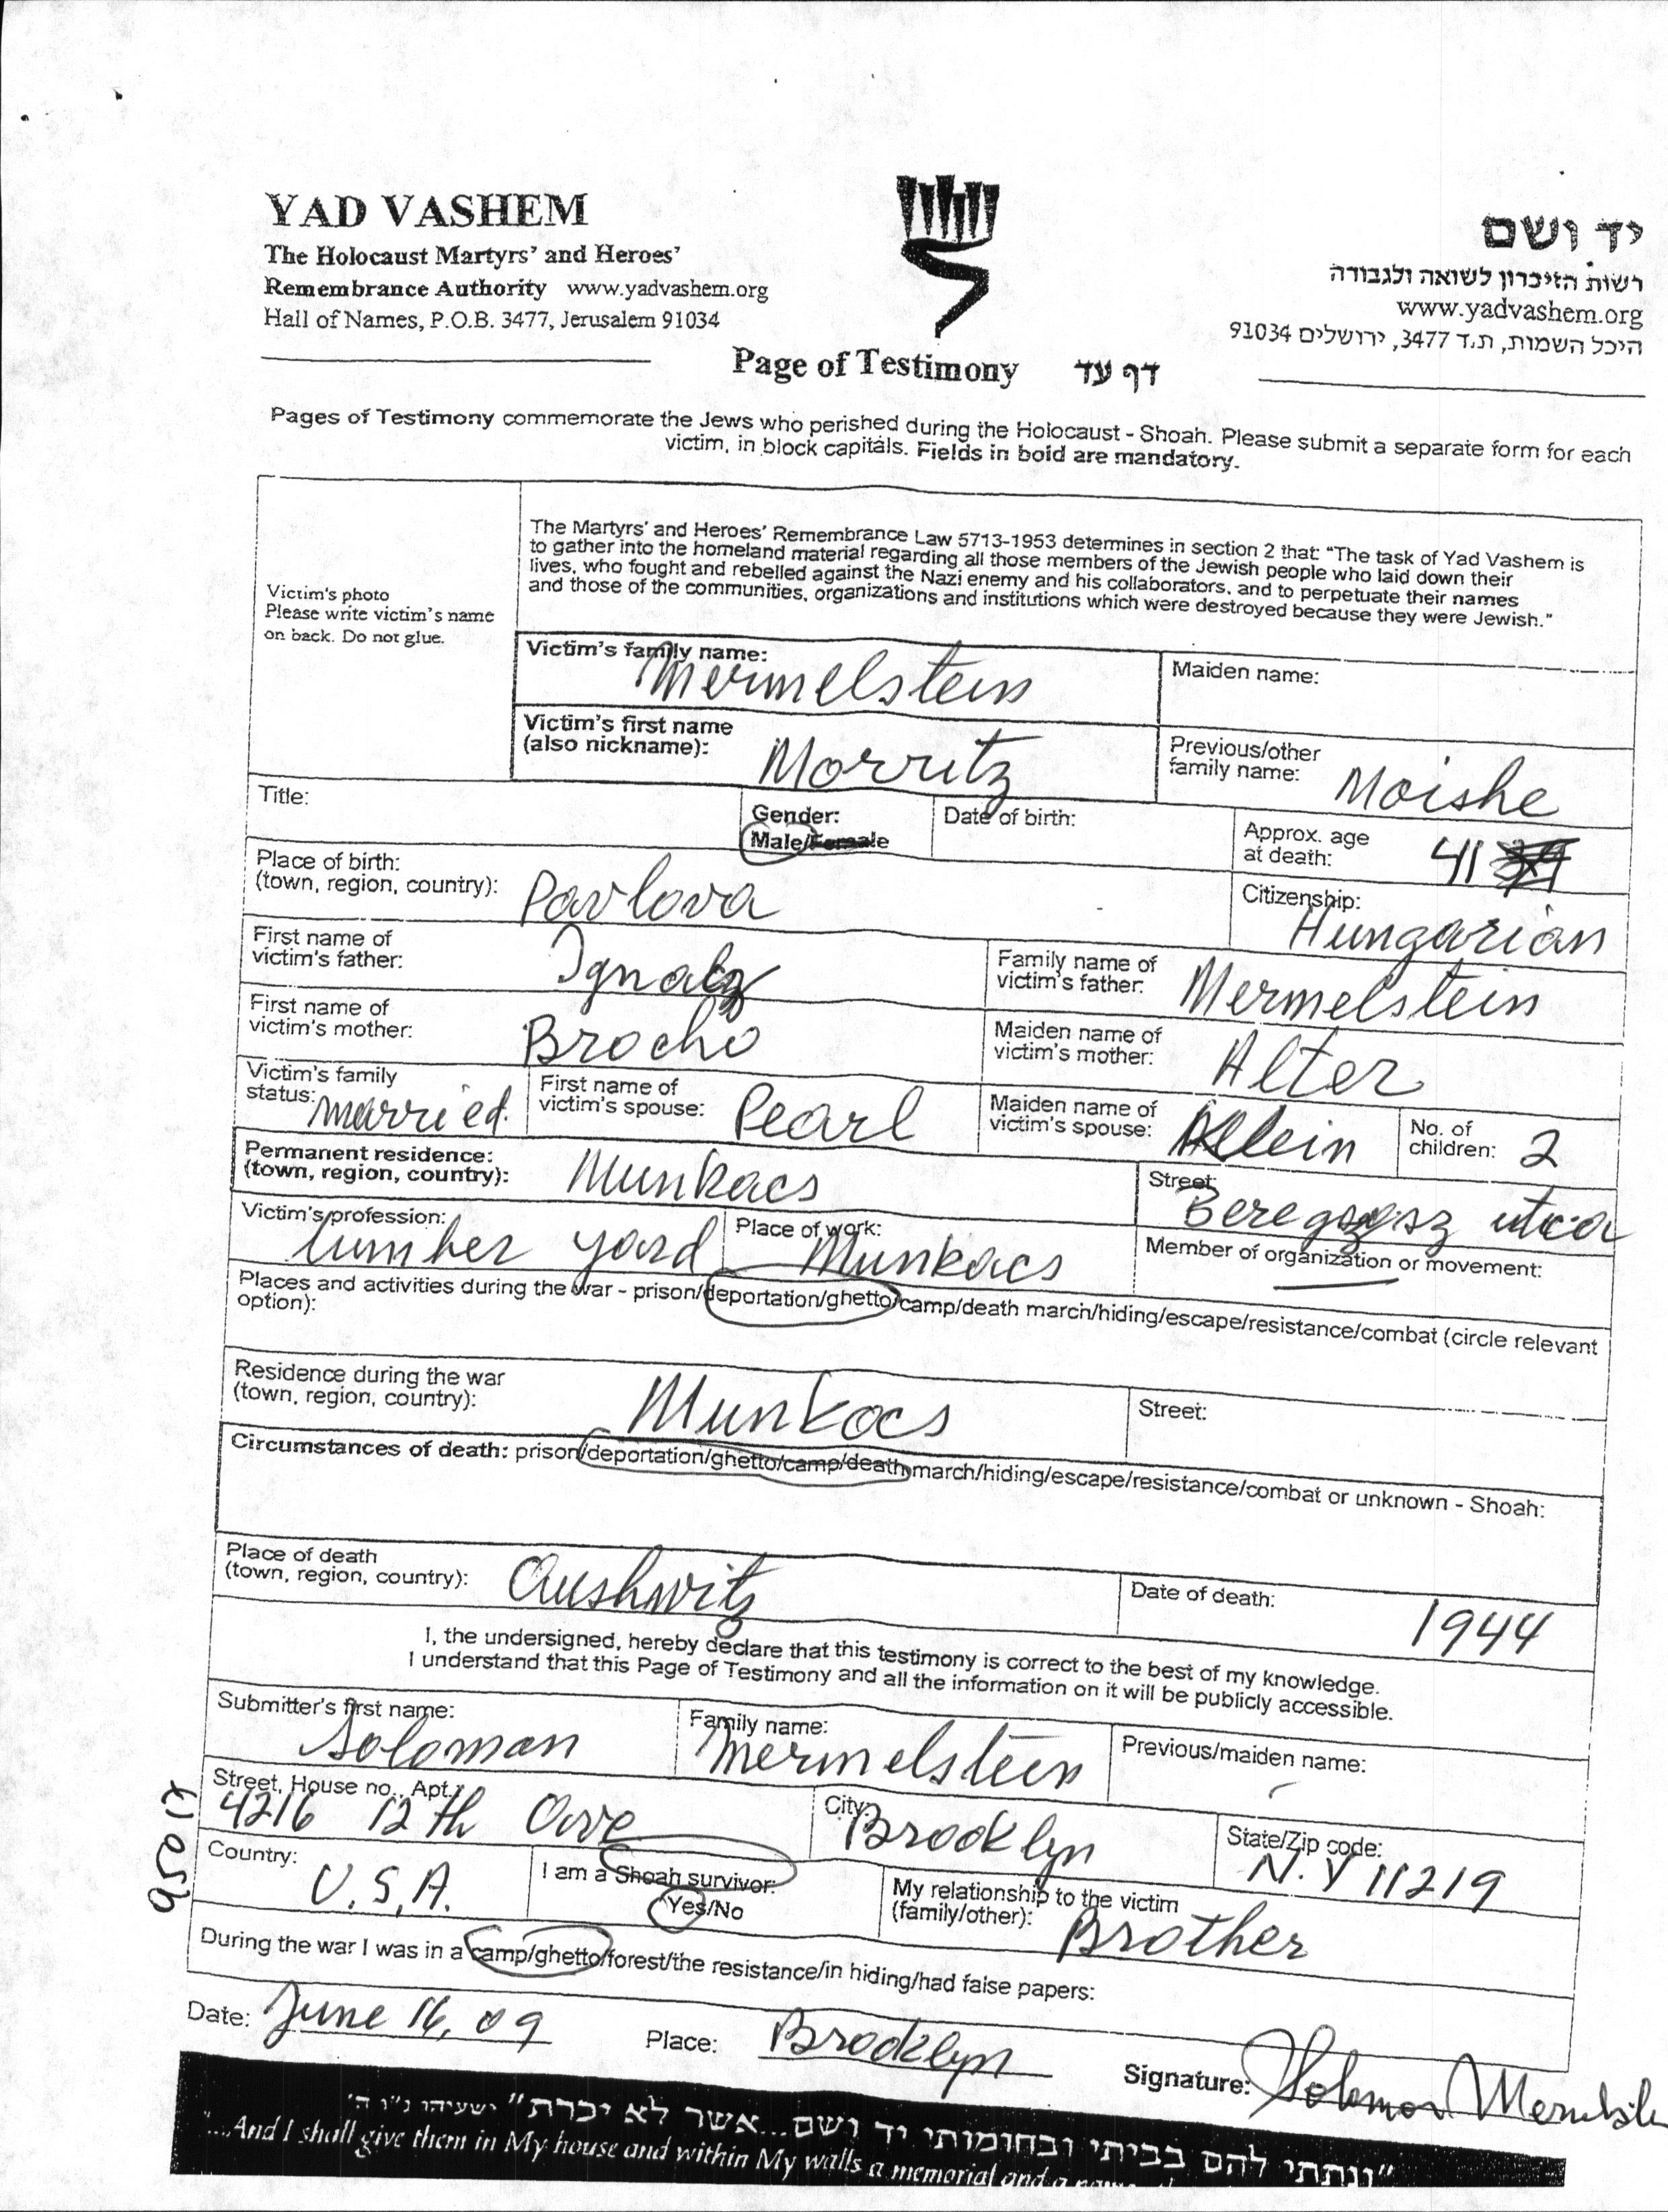 YAD VASHEM
The Holocaust Martyrs' and Heroes'
Remembrance Authority www.yadvashem.org
Hall of Names, P.O.B. 3477, Jerusalem 91034
יד ושם
רשות הזיכרון לשואה ולגבורה
www.yadvashem.org
היכל השמות, ת.ד 3477, ירושלים 91034
Page of Testimony דף עד
Pages of Testimony commemorate the Jews who perished during the Holocaust - Shoah. Please submit a separate form for each
victim, in block capitals. Fields in bold are mandatory.
Victim's photo
Please write victim's name
on back. Do not glue.
The Martyrs' and Heroes' Remembrance Law 5713-1953 determines in section 2 that: "The task of Yad Vashem is
to gather into the homeland material regarding all those members of the Jewish people who laid down their
lives, who fought and rebelled against the Nazi enemy and his collaborators, and to perpetuate their names
and those of the communities, organizations and institutions which were destroyed because they were Jewish."
Victim's family name: Mermelstein
Maiden name:
Victim's first name
(also nickname): Morritz
Previous/other
family name: Moishe
Title:
Gender:
Male/Female
Date of birth:
Approx. age
at death: 41
Place of birth:
(town, region, country): Pavlova
Citizenship:
Hungarian
First name of
victim's father: Ignatz
Family name of
victim's father: Mermelstein
First name of
victim's mother: Brocho
Maiden name of
victim's mother: Alter
Victim's family
status: married.
First name of
victim's spouse: Pearl
Maiden name of
victim's spouse: Klein
No. of
children: 2
Permanent residence:
(town, region, country): Munkacs
Street:
Beregszasz utca
Victim's profession:
lumber yard
Place of work:
Munkacs
Member of organization or movement:
Places and activities during the war - prison/deportation/ghetto/camp/death march/hiding/escape/resistance/combat (circle relevant
option):
Residence during the war
(town, region, country): Munkacs
Street:
Circumstances of death: prison/deportation/ghetto/camp/death march/hiding/escape/resistance/combat or unknown - Shoah:
Place of death
(town, region, country): Aushwitz
Date of death:
1944
I, the undersigned, hereby declare that this testimony is correct to the best of my knowledge.
I understand that this Page of Testimony and all the information on it will be publicly accessible.
Submitter's first name:
Soloman
Family name:
Mermelstein
Previous/maiden name:
-
Street, House no., Apt.:
4216 12th Ave
City:
Brooklyn
State/Zip code:
N.Y 11219
Country:
U.S.A.
I am a Shoah survivor:
Yes/No
My relationship to the victim
(family/other): Brother
During the war I was in a camp/ghetto/forest/the resistance/in hiding/had false papers:
Date: June 16, 09
Place: Brooklyn
Signature: Solomon
"ונתתי להם בביתי ובחומותי יד ושם...אשר לא יכרת" ישעיהו נ"ו ה'
"...And I shall give them in My house and within My walls a memorial and a